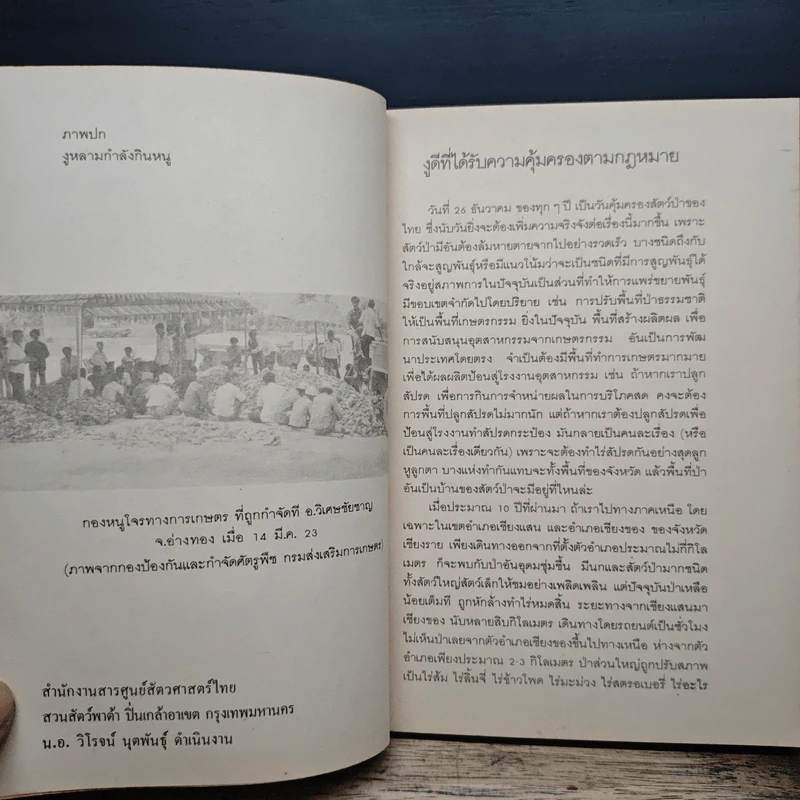 ภาพปก
งูหลามกำลังกินหนู
กองหนูโจรทางการเกษตร ที่ถูกกำจัดที่ อ.วิเศษชัยชาญ
จ.อ่างทอง เมื่อ 14 มี.ค. 23
(ภาพจากกองป้องกันและกำจัดศัตรูพืช กรมส่งเสริมการเกษตร)
สำนักงานสารศูนย์สัตวศาสตร์ไทย
สวนสัตว์พาต้า ปิ่นเกล้าอาเขต กรุงเทพมหานคร
น.อ. วิโรจน์ นุตพันธุ์ ดำเนินงาน
งูดีที่ได้รับความคุ้มครองตามกฎหมาย
วันที่ 26 ธันวาคม ของทุก ๆ ปี เป็นวันคุ้มครองสัตว์ป่าของ
ไทย ซึ่งนับวันยิ่งจะต้องเพิ่มความจริงจังต่อเรื่องนี้มากขึ้น เพราะ
สัตว์ป่ามีอันต้องล้มหายตายจากไปอย่างรวดเร็ว บางชนิดถึงกับ
ใกล้จะสูญพันธุ์หรือมีแนวโน้มว่าจะเป็นชนิดที่มีการสูญพันธุ์ได้
จริงอยู่สภาพการในปัจจุบันเป็นส่วนที่ทำให้การแพร่ขยายพันธุ์
มีขอบเขตจำกัดไปโดยปริยาย เช่น การปรับพื้นที่ป่าธรรมชาติ
ให้เป็นพื้นที่เกษตรกรรม ยิ่งในปัจจุบัน พื้นที่สร้างผลิตผล เพื่อ
การสนับสนุนอุตสาหกรรมจากเกษตรกรรม อันเป็นการพัฒ
นาประเทศโดยตรง จำเป็นต้องมีพื้นที่ทำการเกษตรมากมาย
เพื่อได้ผลผลิตป้อนสู่โรงงานอุตสาหกรรม เช่น ถ้าหากเราปลูก
สัปรด เพื่อการกินการจำหน่ายผลในการบริโภคสด คงจะต้อง
การพื้นที่ปลูกสัปรดไม่มากนัก แต่ถ้าหากเราต้องปลูกสัปรดเพื่อ
ป้อนสู่โรงงานทำสัปรดกระป๋อง มันกลายเป็นคนละเรื่อง (หรือ
เป็นคนละเรื่องเดียวกัน) เพราะจะต้องทำไร่สัปรดกันอย่างสุดลูก
หูลูกตา บางแห่งทำกันแทบจะทั้งพื้นที่ของจังหวัด แล้วพื้นที่ป่า
อันเป็นบ้านของสัตว์ป่าจะมีอยู่ที่ไหนล่ะ
เมื่อประมาณ 10 ปีที่ผ่านมา ถ้าเราไปทางภาคเหนือ โดย
เฉพาะในเขตอำเภอเชียงแสน และอำเภอเชียงของ ของจังหวัด
เชียงราย เพียงเดินทางออกจากที่ตั้งตัวอำเภอประมาณไม่กี่กิโล
เมตร ก็จะพบกับป่าอันอุดมชุ่มชื้น มีนกและสัตว์ป่ามากชนิด
ทั้งสัตว์ใหญ่สัตว์เล็กให้ชมอย่างเพลิดเพลิน แต่ปัจจุบันป่าเหลือ
น้อยเต็มที ถูกหักล้างทำไร่หมดสิ้น ระยะทางจากเชียงแสนมา
เชียงของ นับหลายสิบกิโลเมตร เดินทางโดยรถยนต์เป็นชั่วโมง
ไม่เห็นป่าเลยจากตัวอำเภอเชียงของขึ้นไปทางเหนือ ห่างจากตัว
อำเภอเพียงประมาณ 2-3 กิโลเมตร ป่าส่วนใหญ่ถูกปรับสภาพ
เป็นไร่ส้ม ไร่ลิ้นจี่ ไร่ข้าวโพด ไร่มะม่วง ไร่สตรอเบอรี่ ไร่อะไร